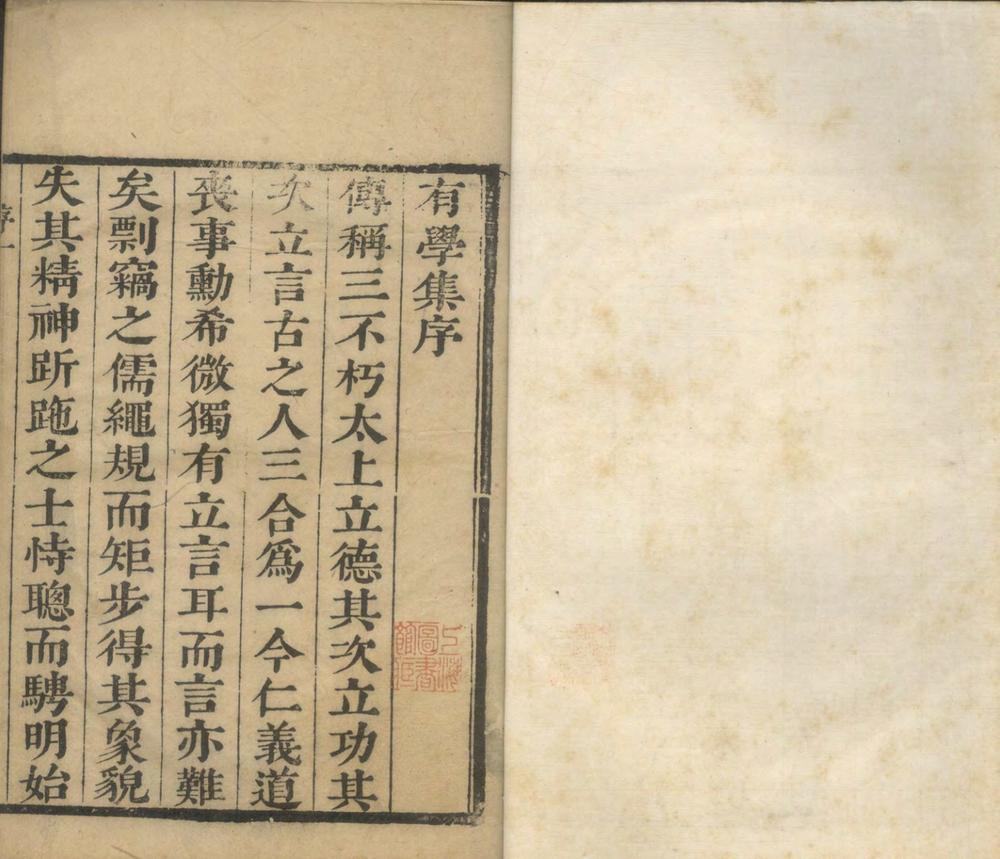 有學集序
傳稱三不朽太上立德其次立功其
次立言古之人三合爲一今仁義道
喪事勳希微獨有立言耳而言亦難
矣剽竊之儒繩規而矩步得其象貌
失其精神跅跎之士恃聰而騁明始
序一
上海圖書館藏